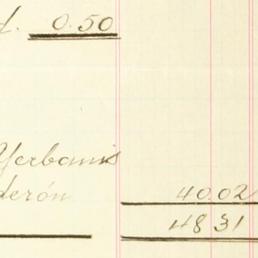 d. 0.50
Yerbanis
derón 40.02
48 31